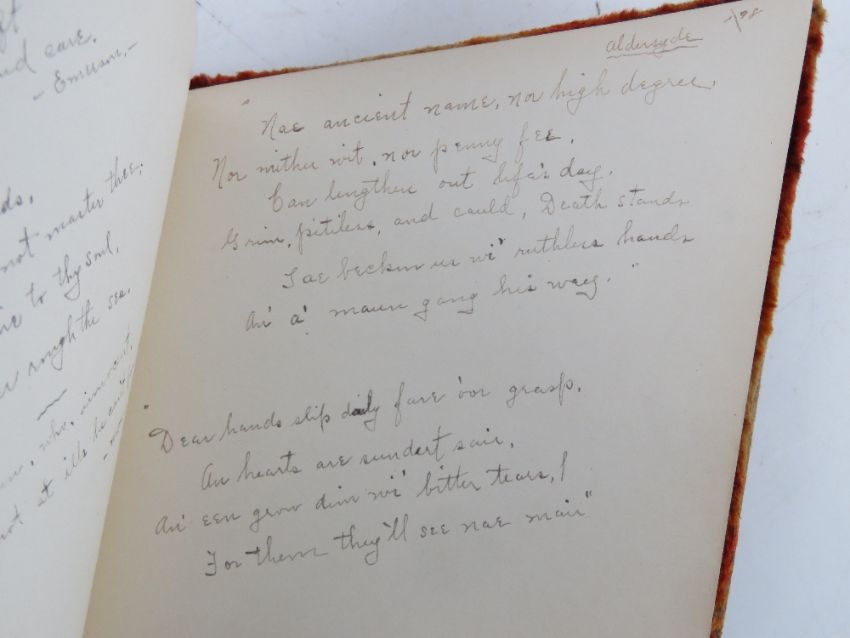 ft
nd care.
- Emerson. -
ds,
not master thee;
to thy soul,
rough the sea.
who, innocent,
at ills he
Aldersyde
-/98
" Nae ancient name, nor high degree,
Nor mither wit, nor penny fee,
Can lengthen out life's day.
Grim, pitiless, and cauld, Death stands
Tae beckon us wi' ruthless hands
An' a' maun gang his way. "
" Dear hands slip daily fare oor grasp,
An hearts are sundert sair,
An' een grow dim wi' bitter tears,
For them they'll see nae mair"